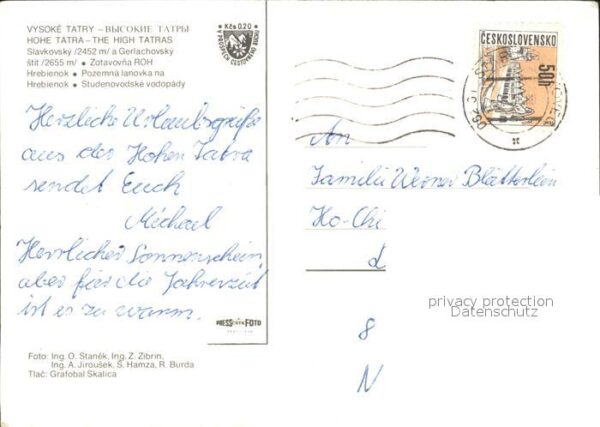 VYSOKÉ TATRY – ВЫСОКИЕ ТАТРЫ
HOHE TATRA – THE HIGH TATRAS
Slavkovský /2452 m/ a Gerlachovský
štít /2655 m/ • Zotavovňa ROH
Hrebienok • Pozemná lanovka na
Hrebienok • Studenovodské vodopády
Kčs 0,20
ČESKOSLOVENSKO
50h
Herzliche Urlaubsgrüße
aus der Hohen Tatra
sendet Euch
Michael
Herrlicher Sonnenschein,
aber für die Jahreszeit
ist es zu warm.
An
Familie Werner Blätterlein
Ho-Chi
d
8
N
privacy protection
Datenschutz
PRESSFOTO
Foto: Ing. O. Staněk, Ing. Z. Zibrin,
Ing. A. Jiroušek, S. Hamza, R. Burda
Tlač: Grafobal Skalica